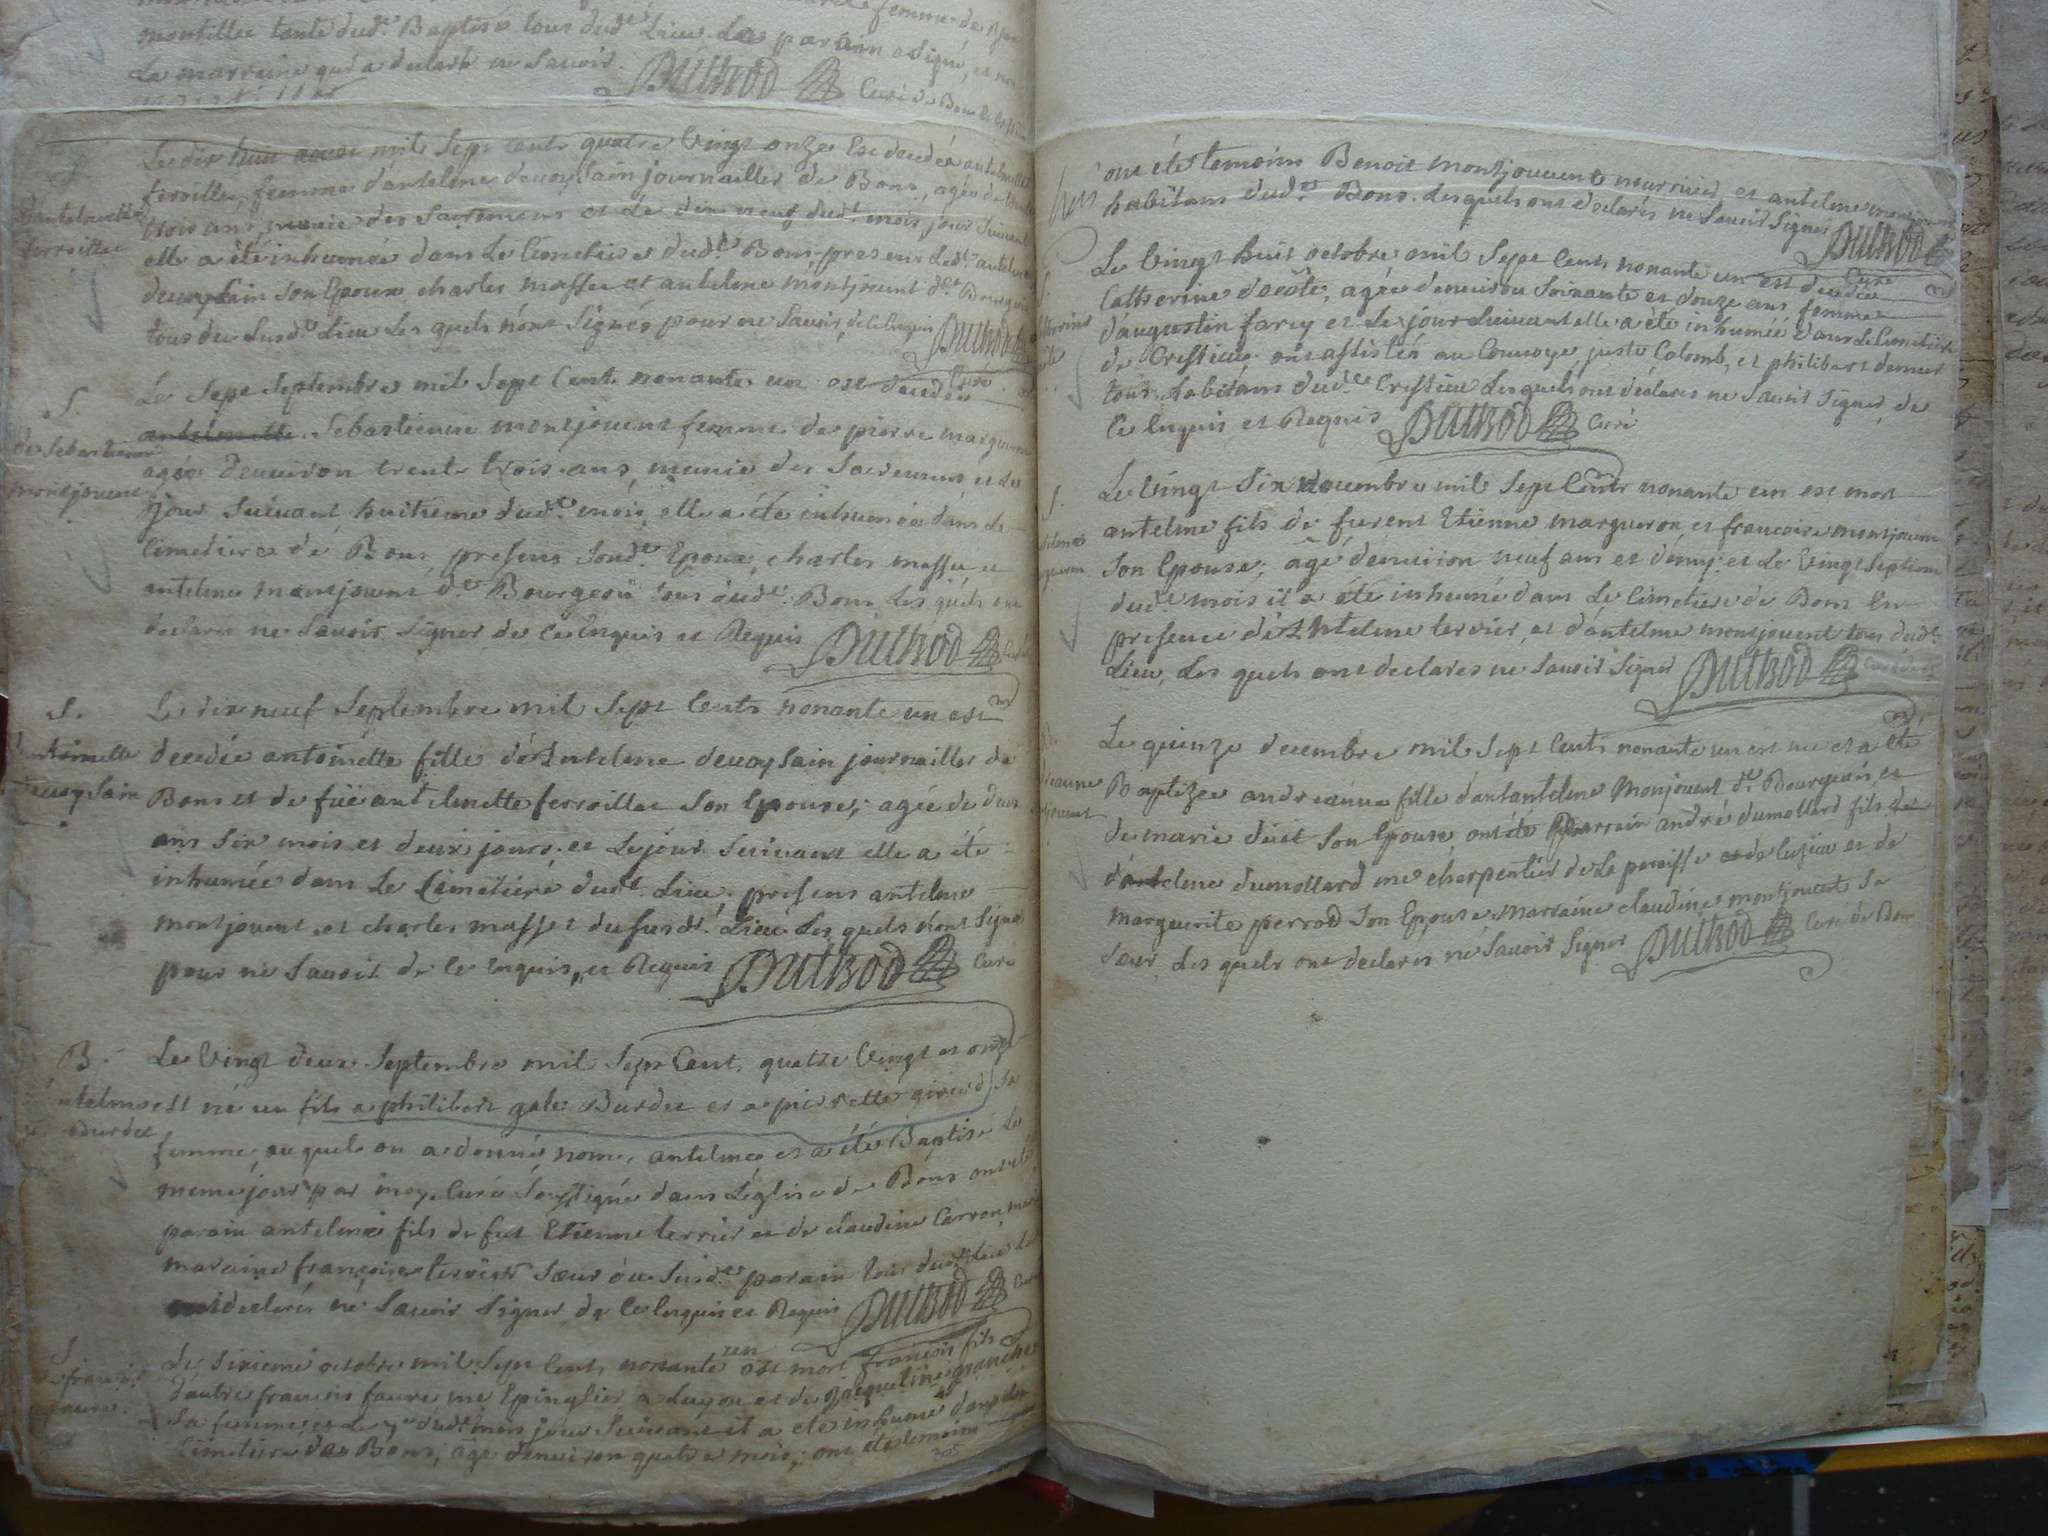 femme de
montillet tante dud.t Baptisé tous dud.t Lieu. Le parain a Signé, et non
La marraine qui a declaré ne Savoir. Duthod Curé de Bons
Le dix huit aoust mil Sept Cents quatre Vingt onze Est decedée antelmette
ferroillet, femme d'antelme devoySain journailler de Bons, agée de
trois ans, munie des Sacremens et Le dix neuf dud.t mois jour Suivant
elle a été inhumée dans Le Cimetiere dud.t Bons presens Led.t antelme
devoySain Son Epoux charles masset et antelme montjouvent d.t Bourgeois
tous du Susd.t Lieu Les quels n'ont Signés pour ne Savoir, de ce Enquis Duthod
Curé
antelmette
ferroillet
Le Sept Septembre mil Sept Cents nonante un est decedée
antelmette Sebastienne montjouvent femme de pierre margueron
agée d'environ trente trois ans, munie des Sacremens et Le
jour Suivant huitieme dud.t mois, elle a été inhumée dans Le
Cimetiere de Bons, presens Sond.t Epoux, charles masset, et
antelme montjouvent d.t Bourgeois tous dud.t Bons, Les quels ont
declarés ne Savoir Signer de ce Enquis et Requis Duthod Curé
S.
de Sebastienne
montjouvent
Le dix neuf Septembre mil Sept Cents nonante un est
decedée antoinette fille d'Antelme devoySain journailler de
Bons et de füe antelmette ferroillet Son Epouse, agée de deux
ans Six mois et deux jours. et Le jour Suivant elle a été
inhumée dans Le Cimetiere dud.t Lieu, presens antelme
montjouvent et charles masset du susd.t Lieu Les quels n'ont Signé
pour ne Savoir de ce Enquis, et Requis Duthod Curé
S.
antoinette
devoySain
Le Vingt deux Septembre mil Sept Cent, quatre Vingt et onze
est né un fils a philibert gale Burdet et a pierrette girerd Sa
femme, au quel on a donné nom, antelme et a été Baptisé Le
meme jour par moy Curé Soussigné dans L'église de Bons ont été
parain antelme fils de fut Etienne terrier et de claudine Carron
maraine françoise terrier Sœur du Susd.t parain tous dud.t Lieu
declarés ne Savoir Signer de ce Enquis et Requis Duthod Curé
B.
antelme
Burdet
Le Sixieme octobre mil Sept Cents nonante un est mort françois fils
d'autre françois faure me Epinglier a Lugon et de Jacqueline
Sa femme, et Le 7.e dud.t mois jour Suivant il a été inhumé dans Le
Cimetiere de Bons, agé d'environ quatre mois; ont étés temoins
S.
françois
faure.
ont été temoins Benoit montjouvent et antelme montjouvent
habitans dud.t Bons. Lesquels ont declarés ne Savoir Signer Duthod
Curé
Le Vingt huit octobre mil Sept Cents nonante un est decedée
Catherine decôte, agée d'environ Soixante et douze ans, femme
d'augustin farcy et Le jour Suivant elle a été inhumée dans Le Cimetiere
de Cressieu, ont assistés au Convoye juste Colomb, et philibert
tous habitans dud.t Cressieu Lesquels ont declarés ne Savoir Signer, de
ce Enquis et Requis Duthod Curé
Le Vingt Six Novembre mil Sept Cents nonante un est mort
antelme fils de furent Etienne margueron, et françoise montjouvent
Son Epouse, agé d'environ neuf ans et demy: et Le Vingt Septieme
dud.t mois il a été inhumé dans Le Cimetiere de Bons En
presence d'Antelme terrier, et d'antelme montjouvent tous dud.t
Lieu, Les quels ont declarés ne Savoir Signer Duthod
S.
Le quinze decembre mil Sept Cents nonante un est née et a été
Baptizée andréanne fille d'antelme Monjouvent d.t Bourgeois, et
de marie duit Son Epouse, ont été Parrain andré dumollard fils de
d'antelme dumollard me charpentier de La paroisse de Cuzieu et de
marguerite perrod Son Epouse, Marraine claudine montjouvent Sa
Sœur, Les quels ont declarés ne Savoir Signer Duthod Curé de Bons